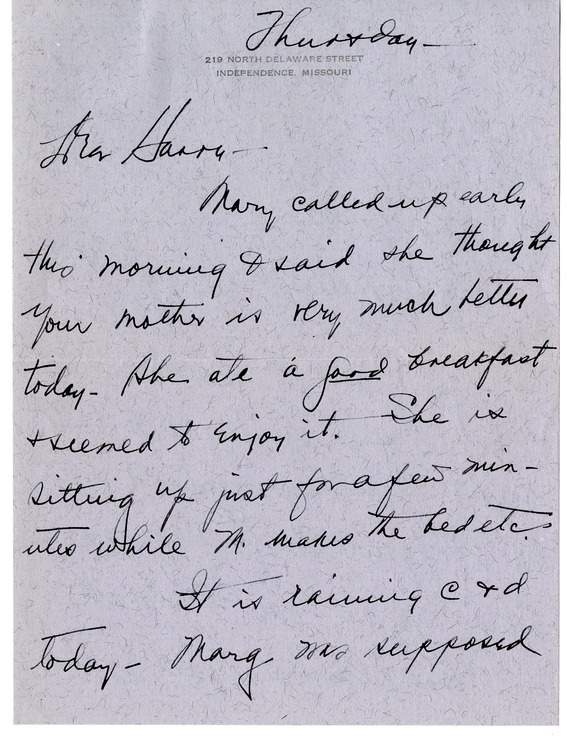 Thursday—
219 NORTH DELAWARE STREET
INDEPENDENCE, MISSOURI
Dear Harry—
Mary called up early
this morning & said she thought
your mother is very much better
today- She ate a good breakfast
& seemed to enjoy it. She is
sitting up just for a few min-
utes while M. makes the bed etc.
It is raining c & d
today- Marg was supposed